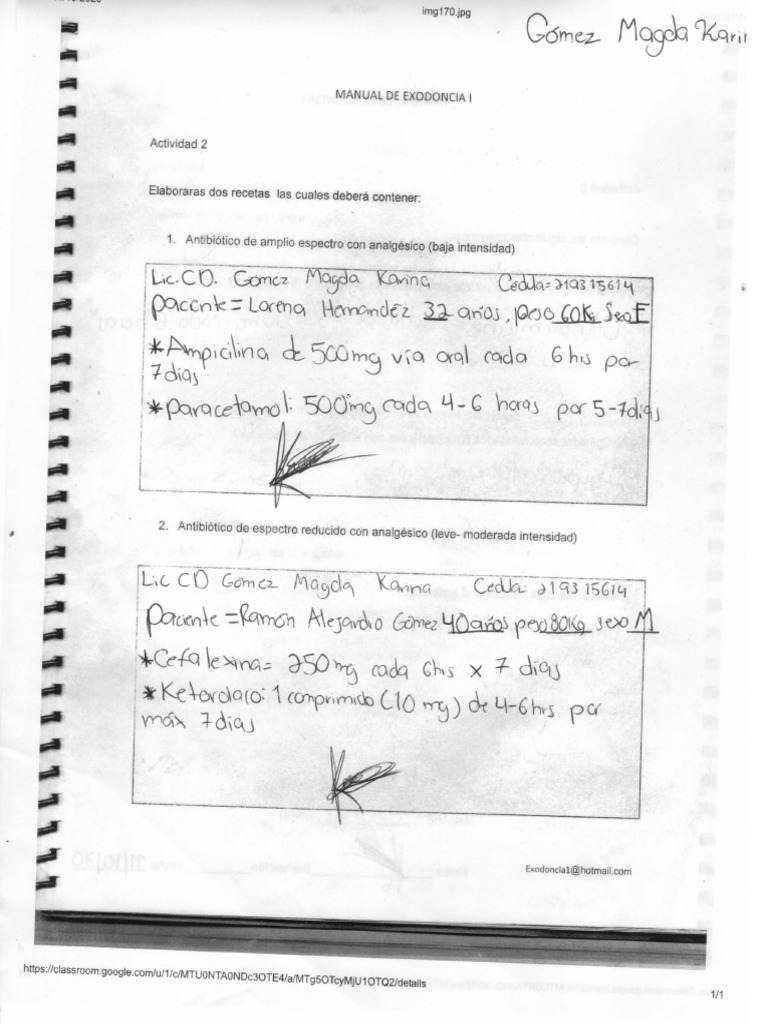 img170.jpg
Gómez Magda Karin
MANUAL DE EXODONCIA I
Actividad 2
Elaboraras dos recetas las cuales deberá contener:
1. Antibiótico de amplio espectro con analgésico (baja intensidad)
Lic.CD. Gómez Magda Karina Cédula= 219315614
paciente = Lorena Hernandéz 32 años, peso 60Kg Sexo F
*Ampicilina de 500mg vía oral cada 6 hrs por
7 dias
*paracetamol: 500mg cada 4-6 horas por 5-7 días
2. Antibiótico de espectro reducido con analgésico (leve- moderada intensidad)
Lic CD Gómez Magda Karina Cedula: 219315614
paciente =Ramón Alejandro Gómez 40 años peso 80Kg sexo M
*Cefalexina= 250mg cada 6hrs x 7 dias
*Ketorolaco: 1 comprimido (10 mg) de 4-6hrs por
máx 7 dias
Exodoncia1@hotmail.com
11/10/20
https://classroom.google.com/u/1/c/MTU0NTA0NDc3OTE4/a/MTg5OTcyMjU1OTQ2/details
1/1